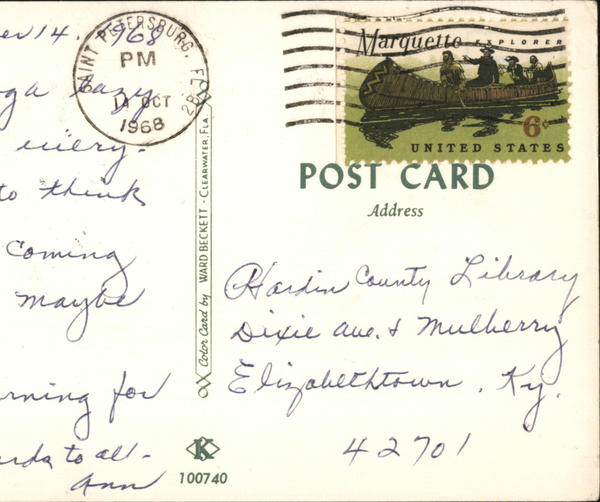 er 14. 1968
ga lazy
every-
to think
coming
maybe
rning for
ards to all-
Ann
SAINT PETERSBURG, FL
PM
14 OCT
1968
Color Card by WARD BECKETT - CLEARWATER, FLA.
K
100740
Marquette EXPLORER
6¢
UNITED STATES
POST CARD
Address
Hardin County Library
Dixie Ave. & Mulberry
Elizabethtown, Ky.
42701